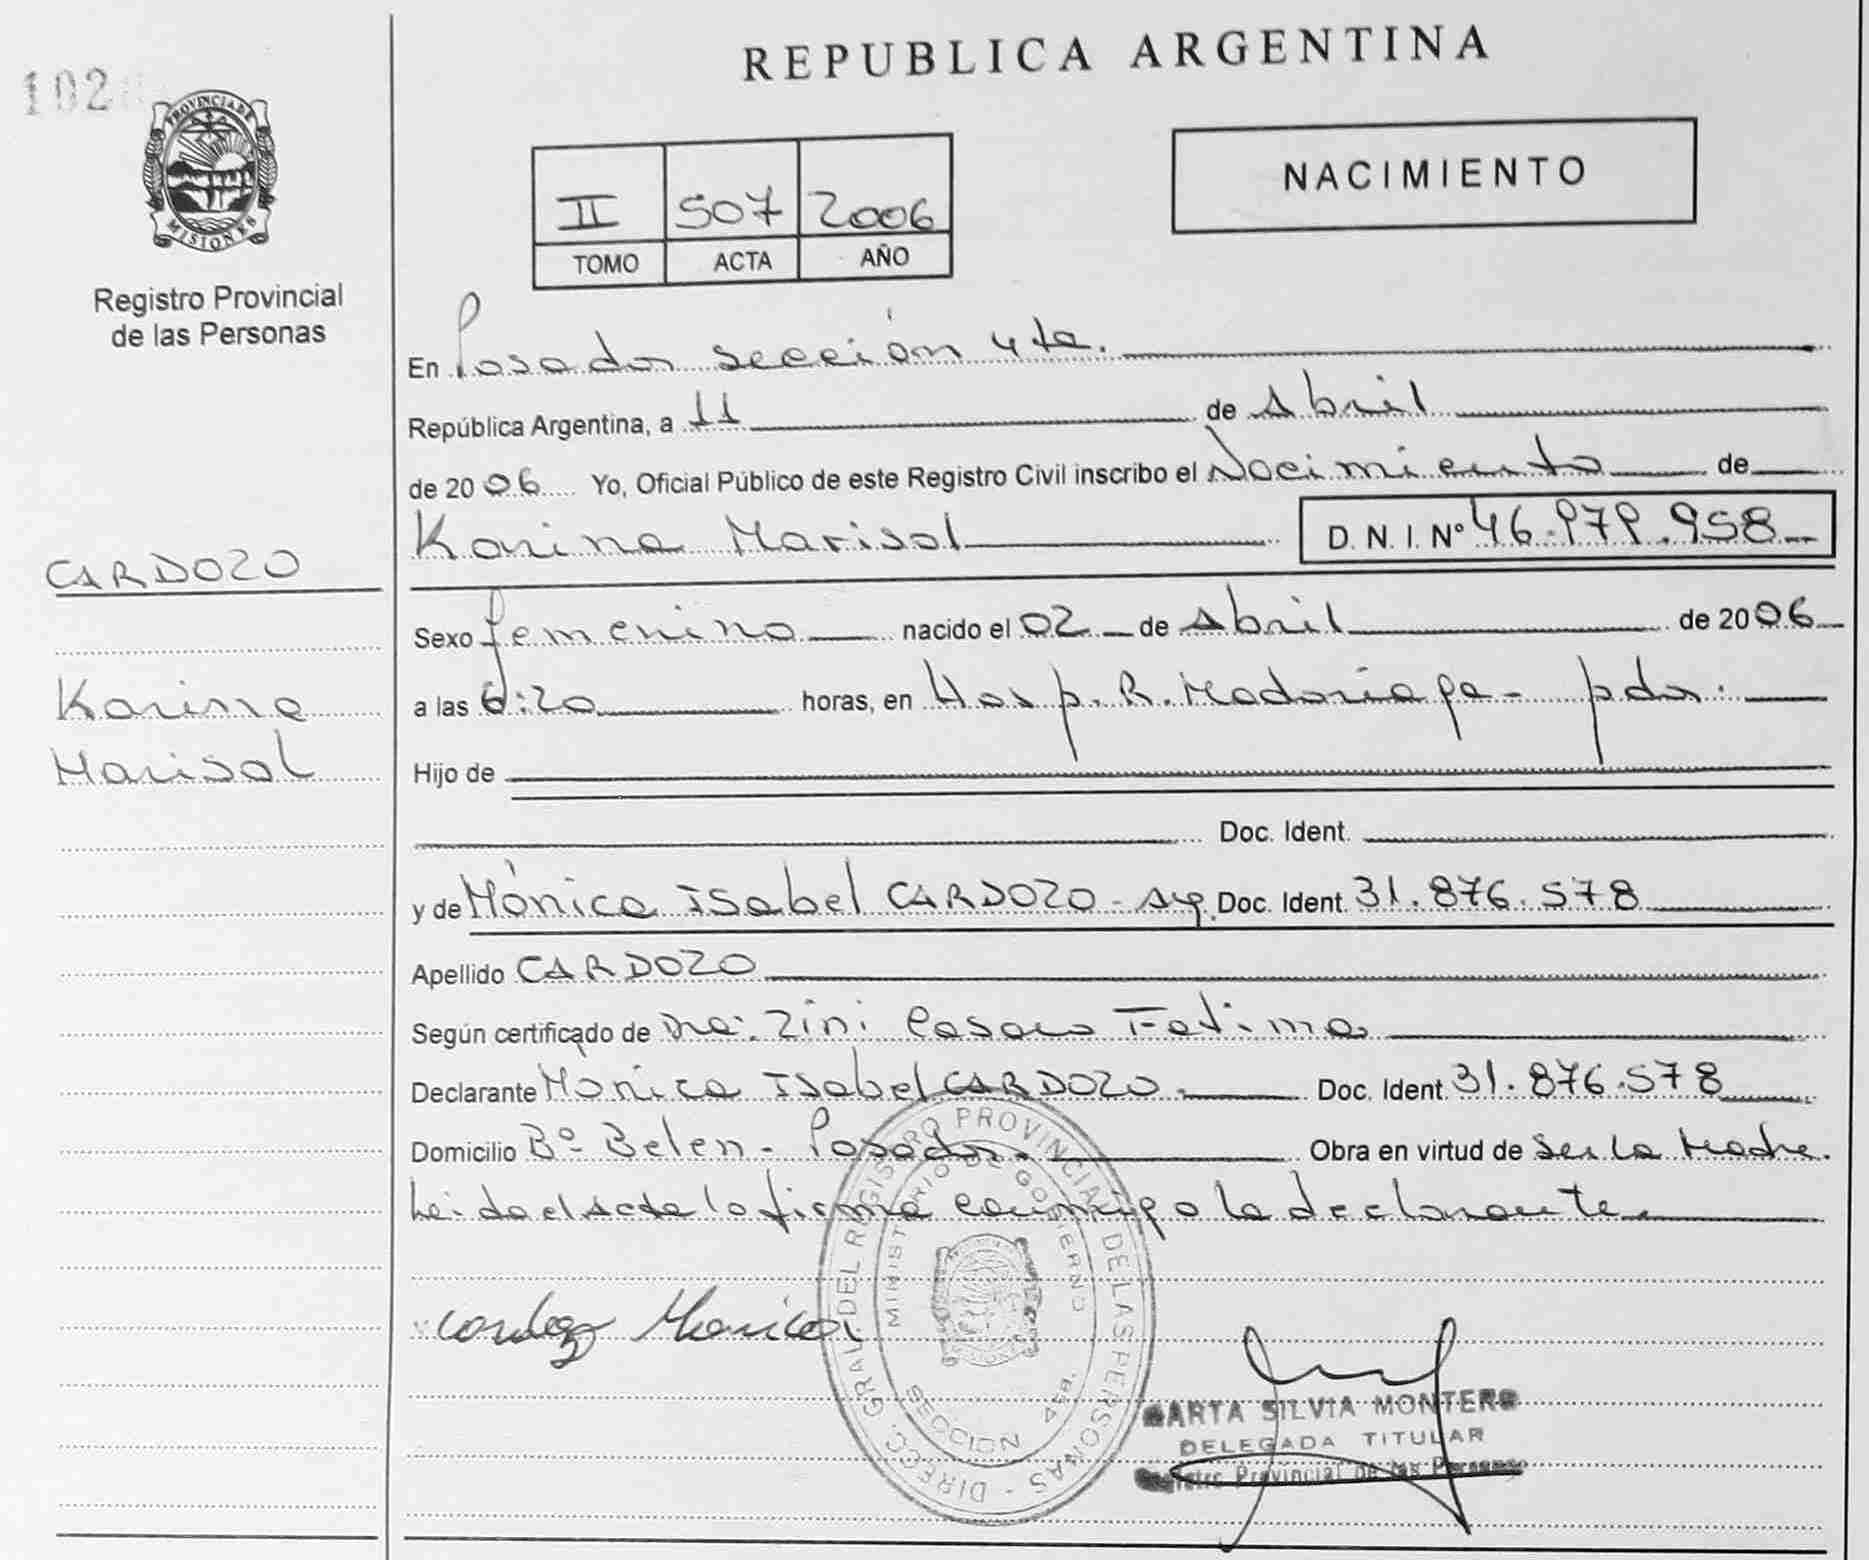 102
PROVINCIA DE
MISIONES
Registro Provincial
de las Personas
CARDOZO
Karina
Marisol
REPUBLICA ARGENTINA
II 507 2006
TOMO ACTA AÑO
NACIMIENTO
En Posadas sección 4ta.
República Argentina, a 11 de Abril
de 2006 Yo, Oficial Público de este Registro Civil inscribo el Nacimiento de
Karina Marisol D.N.I. Nº 46.979.958
Sexo femenino nacido el 02 de Abril de 2006
a las 6:20 horas, en Hosp. R. Madariaga - pdas.
Hijo de
Doc. Ident.
y de Mónica Isabel CARDOZO - arg. Doc. Ident. 31.876.578
Apellido CARDOZO
Según certificado de Dra. Zini Fatima
Declarante Mónica Isabel CARDOZO Doc. Ident. 31.876.578
Domicilio Bº Belen - Posadas Obra en virtud de ser la Madre.
Leida el Acta la firma conmigo la declarante.
Cardozo Monica
DIRECC. GRAL. DEL REGISTRO PROVINCIAL DE LAS PERSONAS
MINISTERIO DE GOBIERNO
SECCION 4ta.
MARTA SILVIA MONTERO
DELEGADA TITULAR
Registro Provincial de las Personas